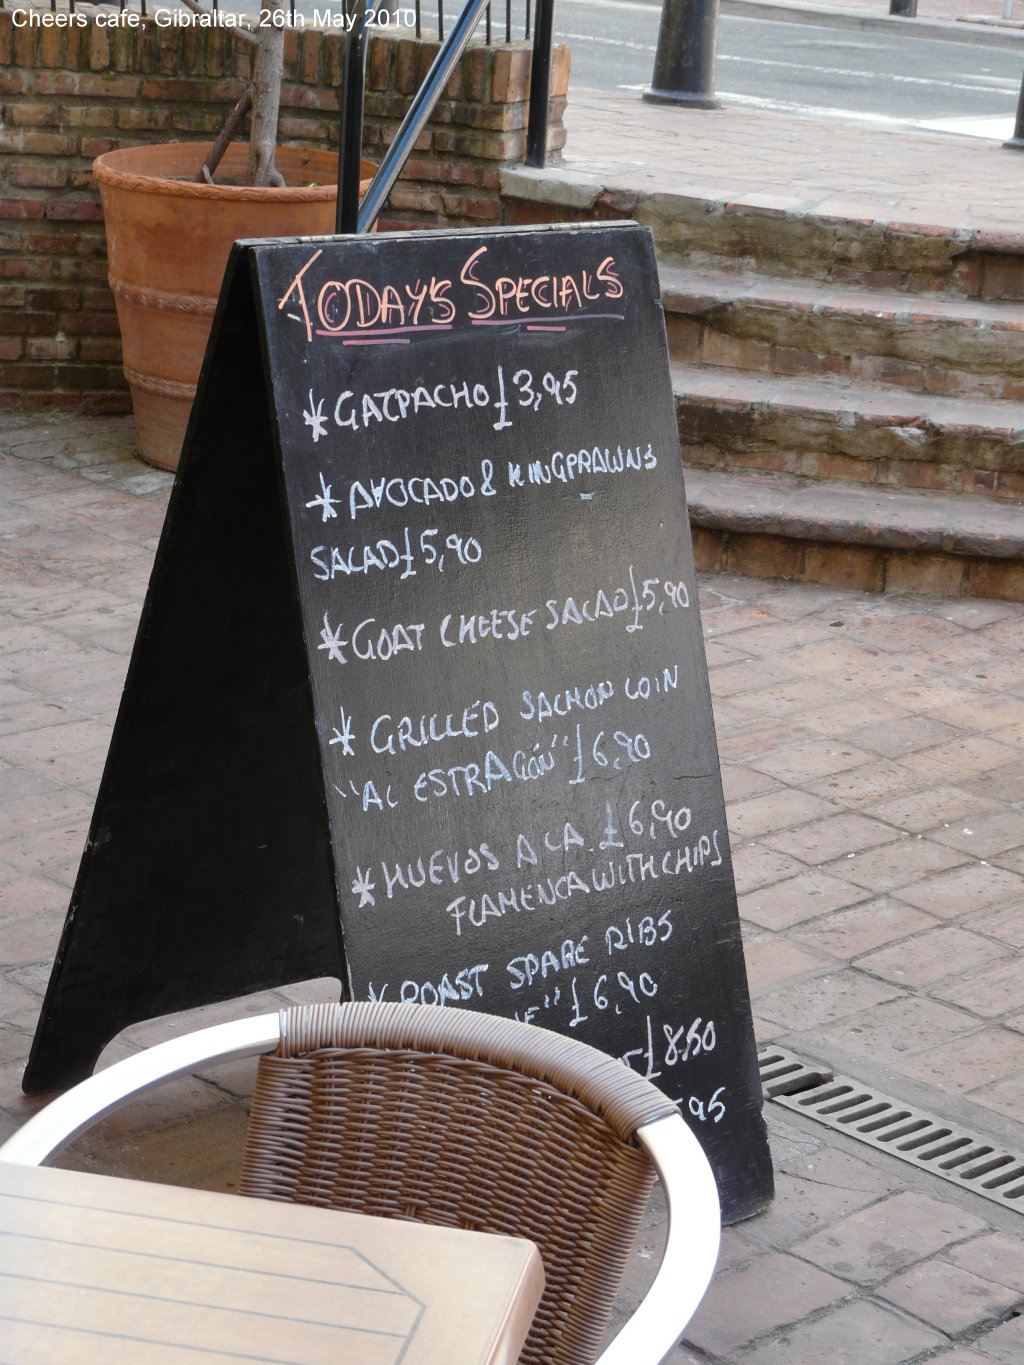 Cheers cafe, Gibraltar, 26th May 2010
TODAY'S SPECIALS
*GAZPACHO £3,95
*AVOCADO & KINGPRAWNS
SALAD £5,90
*GOAT CHEESE SALAD £5,90
*GRILLED SALMON LOIN
"AL ESTRAGÓN" £6,90
*HUEVOS A LA £6,90
FLAMENCA WITH CHIPS
*ROAST SPARE RIBS
" £6,90
£8.50
95